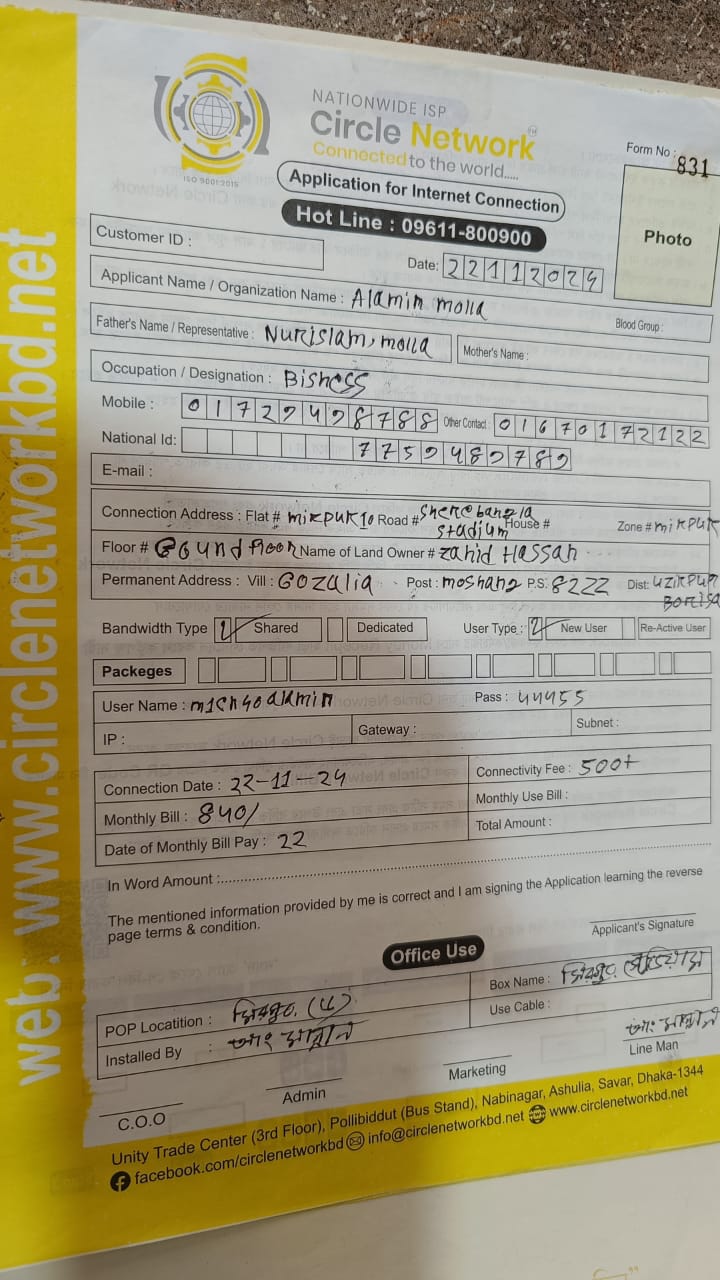 web: www.circlenetworkbd.net
ISO 9001:2015
NATIONWIDE ISP
Circle Network
Connected to the world.....
Application for Internet Connection
Hot Line : 09611-800900
Form No : 831
Photo
Customer ID :
Date: 22112024
Applicant Name / Organization Name : Alamin molla
Blood Group :
Father's Name / Representative : Nurislam, molla Mother's Name :
Occupation / Designation : Bisness
Mobile : 01729498788 Other Contact 01670172122
National Id: 7759489789
E-mail :
Connection Address : Flat # mirpur 10 Road # Shere bangla stadium House # Zone # mirpur
Floor # Gound floor Name of Land Owner # zahid Hassan
Permanent Address : Vill : Gozalia Post : moshang P.S: 8222 Dist: uzirpur
Bandwidth Type Shared Dedicated User Type : New User Re-Active User
Packeges
User Name : Pass : 44455
IP : Gateway : Subnet :
Connection Date : 22-11-24 Connectivity Fee : 500+
Monthly Bill : 840/ Monthly Use Bill :
Date of Monthly Bill Pay : 22 Total Amount :
In Word Amount :
The mentioned information provided by me is correct and I am signing the Application learning the reverse
page terms & condition.
Applicant's Signature
Office Use
POP Locatition : মিরপুর Box Name : মিরপুর
Installed By : Use Cable :
C.O.O Admin Marketing Line Man
Unity Trade Center (3rd Floor), Pollibiddut (Bus Stand), Nabinagar, Ashulia, Savar, Dhaka-1344
facebook.com/circlenetworkbd info@circlenetworkbd.net www.circlenetworkbd.net